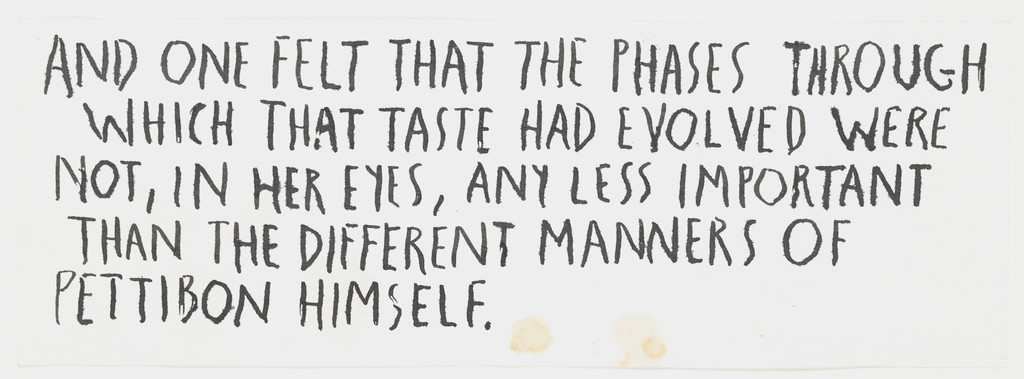 AND ONE FELT THAT THE PHASES THROUGH
WHICH THAT TASTE HAD EVOLVED WERE
NOT, IN HER EYES, ANY LESS IMPORTANT
THAN THE DIFFERENT MANNERS OF
PETTIBON HIMSELF.